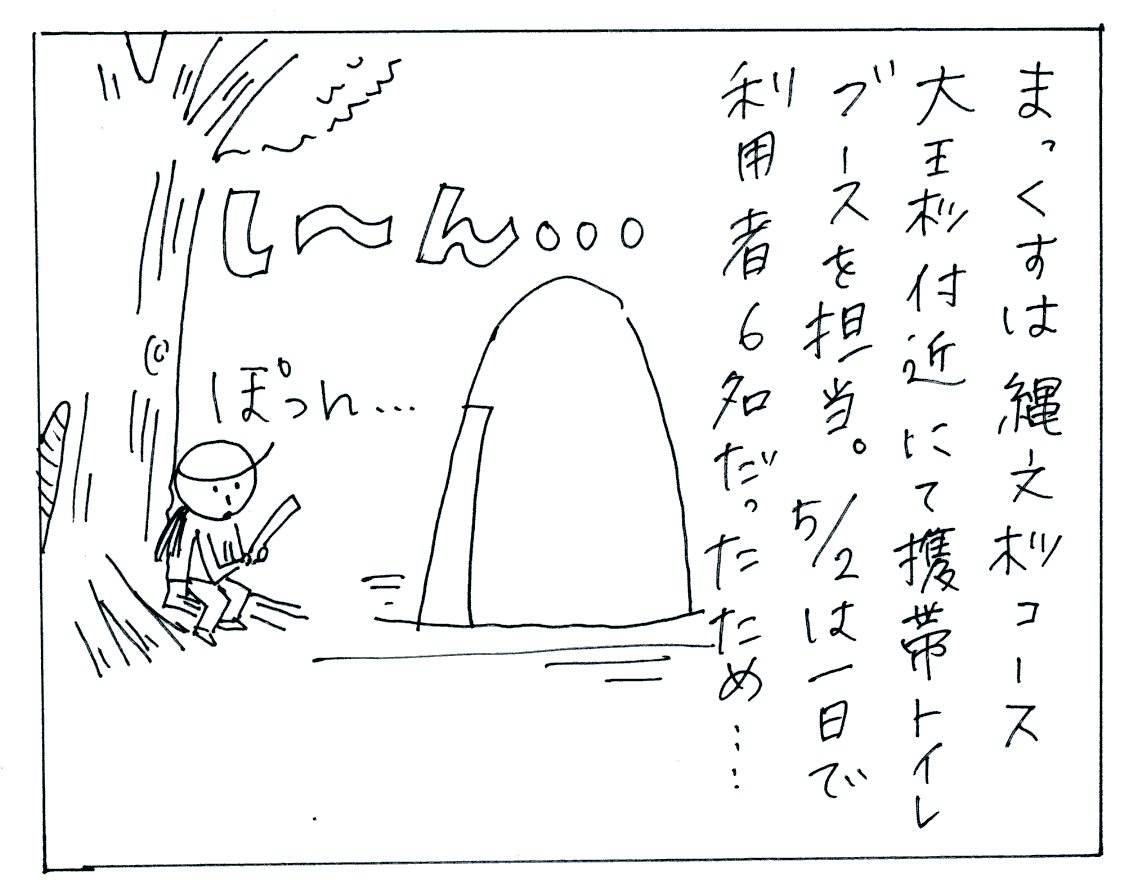 まっくすは縄文杉コース
大王杉付近にて携帯トイレ
ブースを担当。5/2は一日で
利用者6名だったため……
し〜ん...
ぽつん...